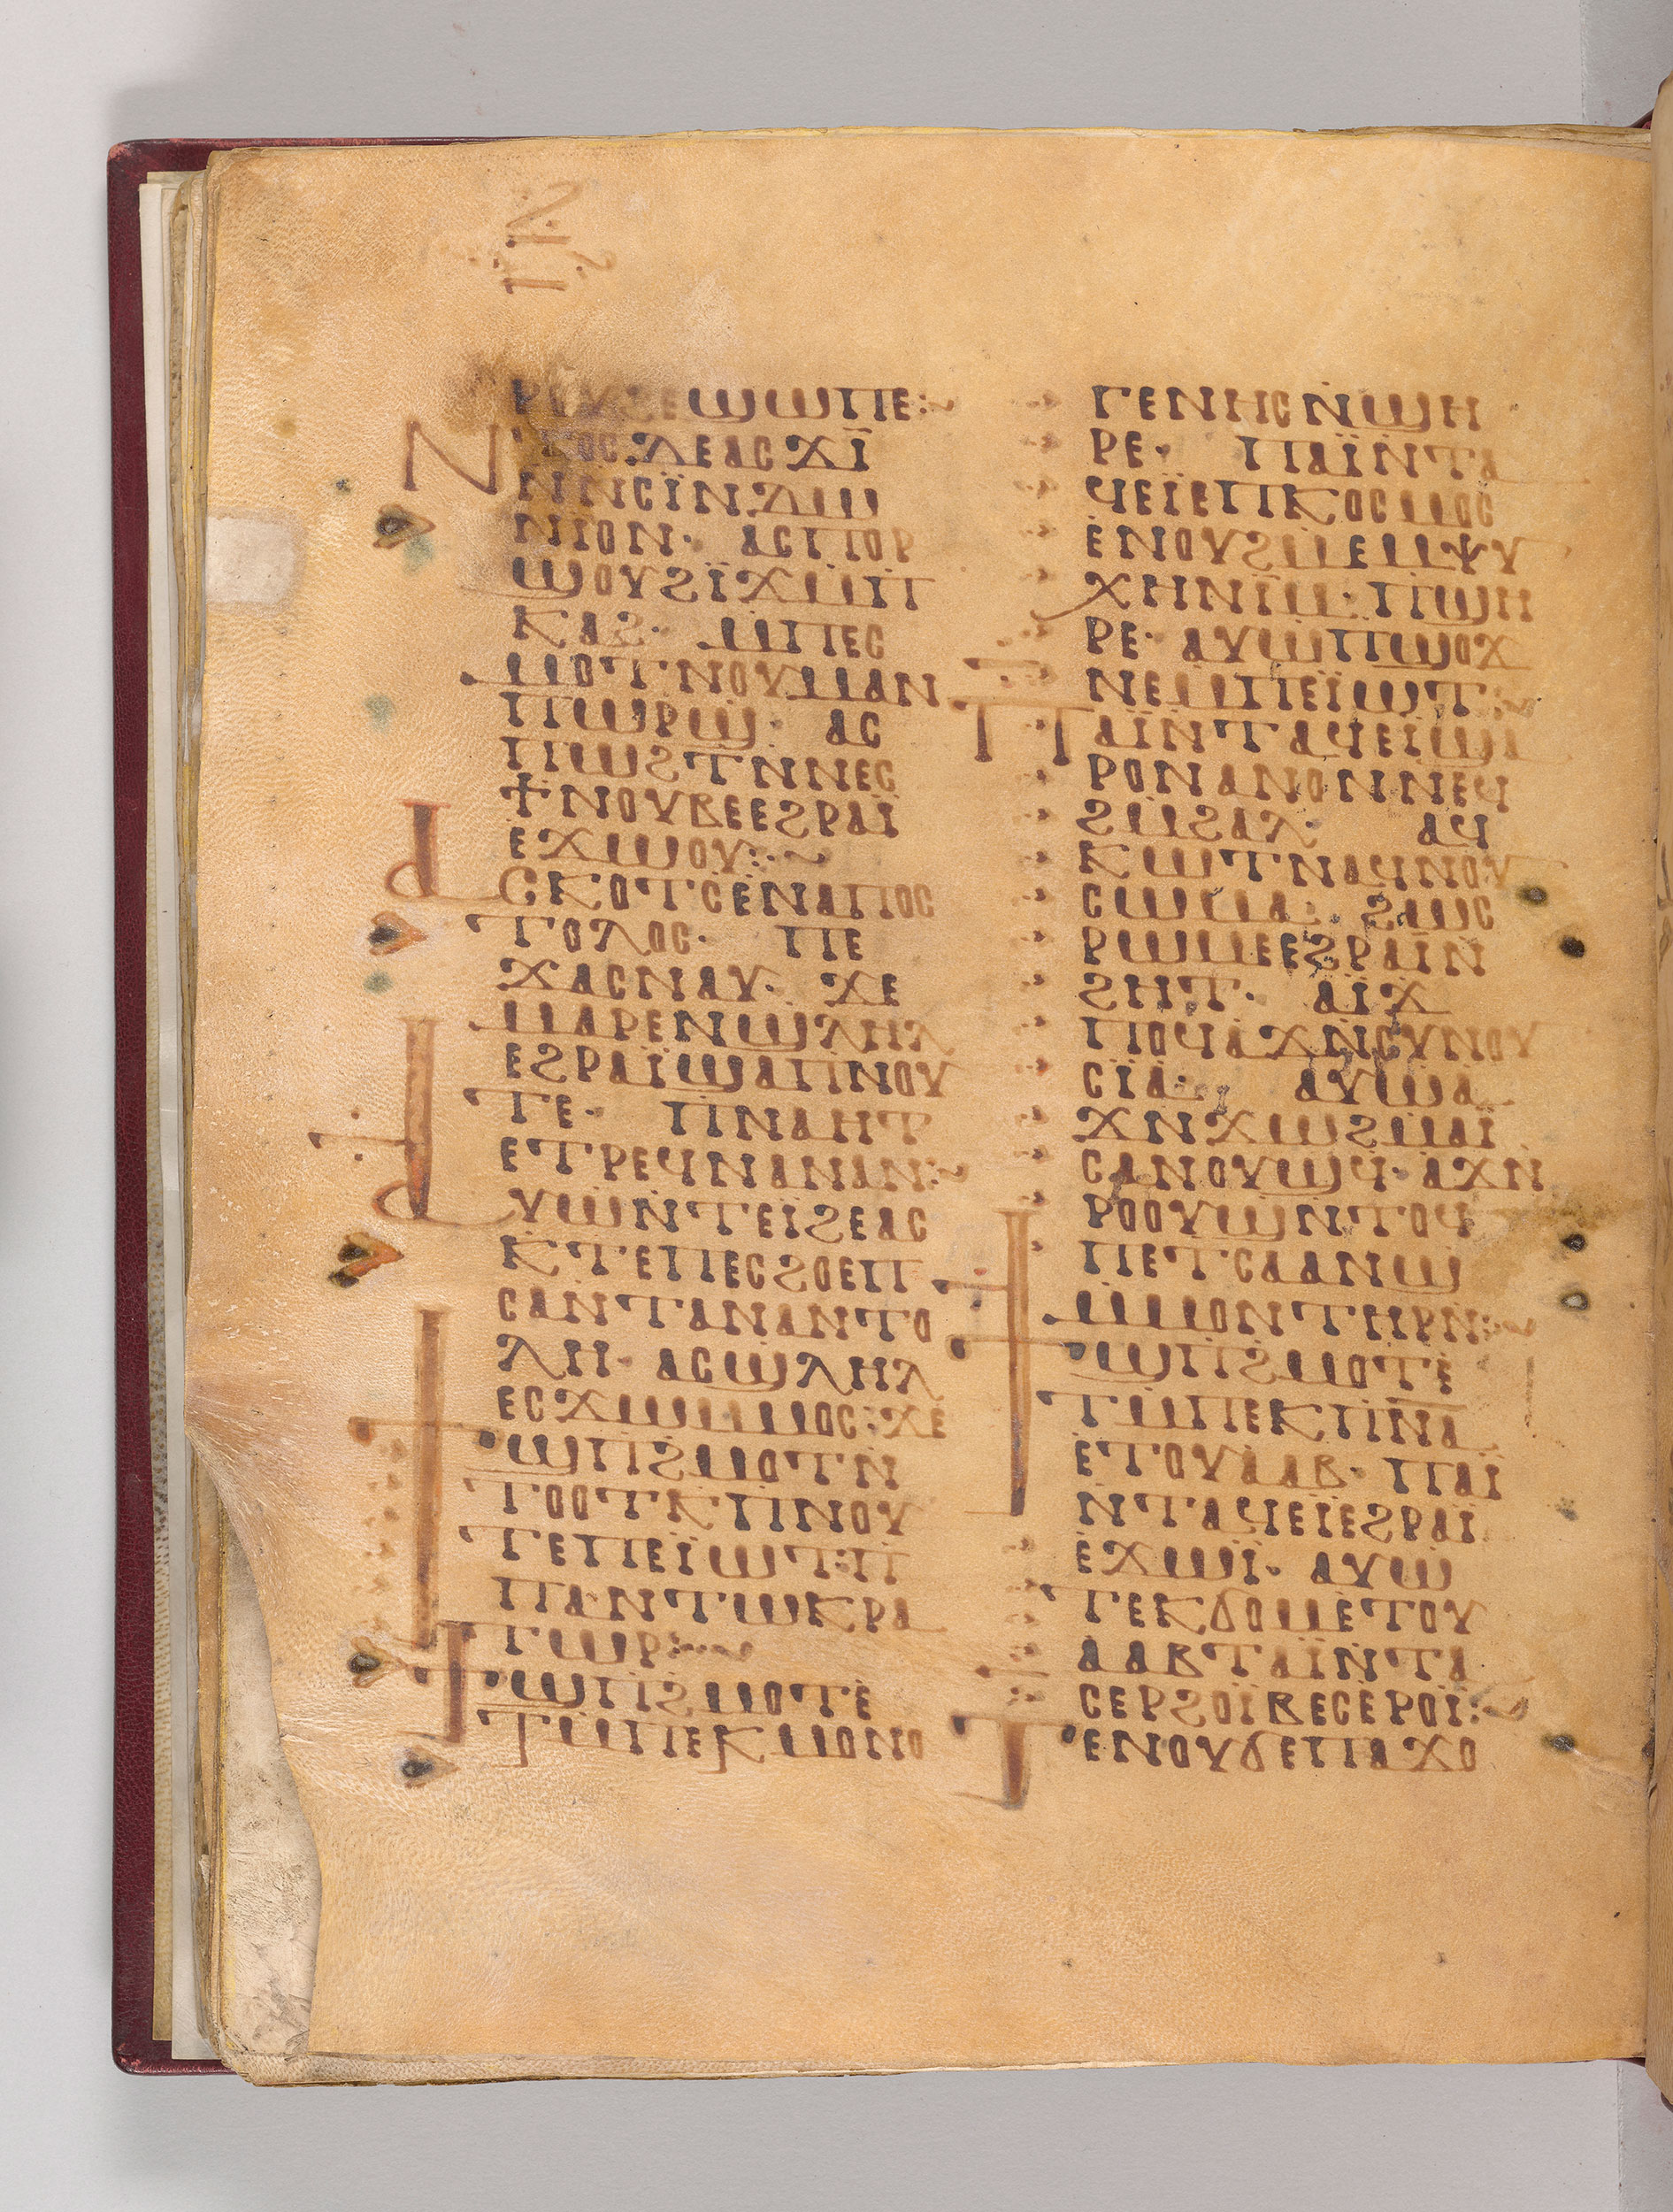 ϣⲱⲡⲉ:~
Ⲛⲧⲟⲥⲇⲉⲁⲥϫⲓ̄
ⲛ̄ⲛⲥⲓ̈ⲛⲇⲱ
ⲛⲓⲟⲛ· ⲁⲥⲡⲟⲣ
ϣⲟⲩϩⲓ̈ϫⲙ̇ⲡ̇
ⲕⲁϩ· ⲙ̇ⲡⲉⲥ
ⲙⲟⲧⲛⲟⲩⲙⲁⲛ
ⲡⲱⲣϣ· ⲁⲥ
ⲡⲱϩⲧⲛⲛⲉⲥ
ϯⲛⲟⲩⲃⲉⲉϩⲣⲁⲓ̈
ⲉ̇ϫⲱⲟⲩ:·~
Ⲁⲥⲕⲟⲧⲥ̇ⲉ̇ⲛⲁⲡⲟⲥ
ⲧⲟⲗⲟⲥ· ⲡⲉ
ϫⲁⲥⲛⲁⲩ· ϫⲉ
ⲙⲁⲣⲉⲛϣⲗⲏⲗ
ⲉϩⲣⲁⲓ̈ϣⲁⲡⲛⲟⲩ
ⲧⲉ· ⲡⲛⲁⲏⲧ
ⲉⲧⲣⲉϥⲛⲁⲛⲁⲛ:~
Ⲁⲩⲱⲛ̇ⲧⲉⲓ̈ϩⲉⲁⲥ
ⲕⲧⲉⲡⲉⲥϩⲟⲉⲡ
ⲥⲁⲛⲧⲁⲛⲁⲛⲧⲟ
ⲗⲏ· ⲁⲥϣⲗⲏⲗ
ⲉⲥϫⲱⲙⲙⲟⲥ:ϫⲉ
Ϯϣⲡ̇ϩⲙⲟⲧⲛ̇
ⲧⲟⲟⲧⲕ̇ⲡⲛⲟⲩ
ⲧⲉⲡⲉⲓ̈ⲱⲧ:ⲡ̇
ⲡⲁⲛⲧⲱⲕⲣⲁ
ⲧⲱⲣ:~
Ϯϣⲡ̇ϩⲙⲟⲧⲉ̇
ⲧⲙ̇ⲡⲉⲕⲙⲟⲛⲟ
ⲅⲉⲛⲏⲥⲛ̇ϣⲏ
ⲣⲉ· ⲡⲁⲓ̈ⲛ̇ⲧⲁ
ϥⲉⲓ̈ⲉⲡⲕⲟⲥⲙⲟⲥ
ⲉ̇ⲛⲟⲩϩⲙ̇ⲉⲙⲯⲩ
ⲭⲏⲛⲓ̈ⲙ· ⲡϣⲏ
ⲣⲉ· ⲁⲩⲱⲡϣⲟϫ
ⲛⲉⲙ̇ⲡⲉⲓ̈ⲱⲧ:~
Ⲡⲁⲓ̈ⲛ̇ⲧⲁϥⲉⲓ̈ϣⲁ
ⲣⲟⲛⲁⲛⲟⲛⲛⲉϥ
ϩⲙ̇ϩⲁⲗ· ⲁϥ
ⲕⲱⲧⲛⲁϥⲛⲟⲩ
ⲥⲱⲙⲁ· ϩⲱⲥ
ⲣⲱⲙⲉⲉϩⲣⲁⲓ̈ⲛ
ϩⲏⲧ· ⲁϊϫ
ⲡⲟϥⲁ̇ϫⲛ̇ⲥⲩⲛⲟⲩ
ⲥⲓ̈ⲁ· ⲁⲩⲱⲁ
ϫⲛϫⲱϩⲙⲁⲓ̈
ⲥⲁⲛⲟⲩϣϥ· ⲁϫⲛ
ⲣⲟⲟⲩϣⲛ̇ⲧⲟϥ
ⲡⲉⲧⲥⲁⲁⲛϣ̇
ⲙ̇ⲙⲟⲛⲧⲏⲣⲛ:~
Ϯϣⲡ̇ϩⲙⲟⲧⲉ̇
ⲧⲙ̇ⲡⲉⲕⲡⲛ̅ⲁ̅
ⲉ̇ⲧⲟⲩⲁⲁⲃ· ⲡⲁⲓ̈
ⲛ̇ⲧⲁϥⲉⲓ̈ⲉϩⲣⲁⲓ̈
ⲉ̇ϫⲱⲓ̈· ⲁⲩⲱ
ⲧⲉⲕϭⲟⲙⲉ̇ⲧⲟⲩ
ⲁⲁⲃⲧⲁⲓ̈ⲛ̇ⲧⲁ
ⲥⲉⲣϩⲟⲓ̈ⲃⲉⲥⲉ̇ⲣⲟⲓ̈:~
Ⲧⲉⲛⲟⲩϭⲉⲡⲁϫⲟ